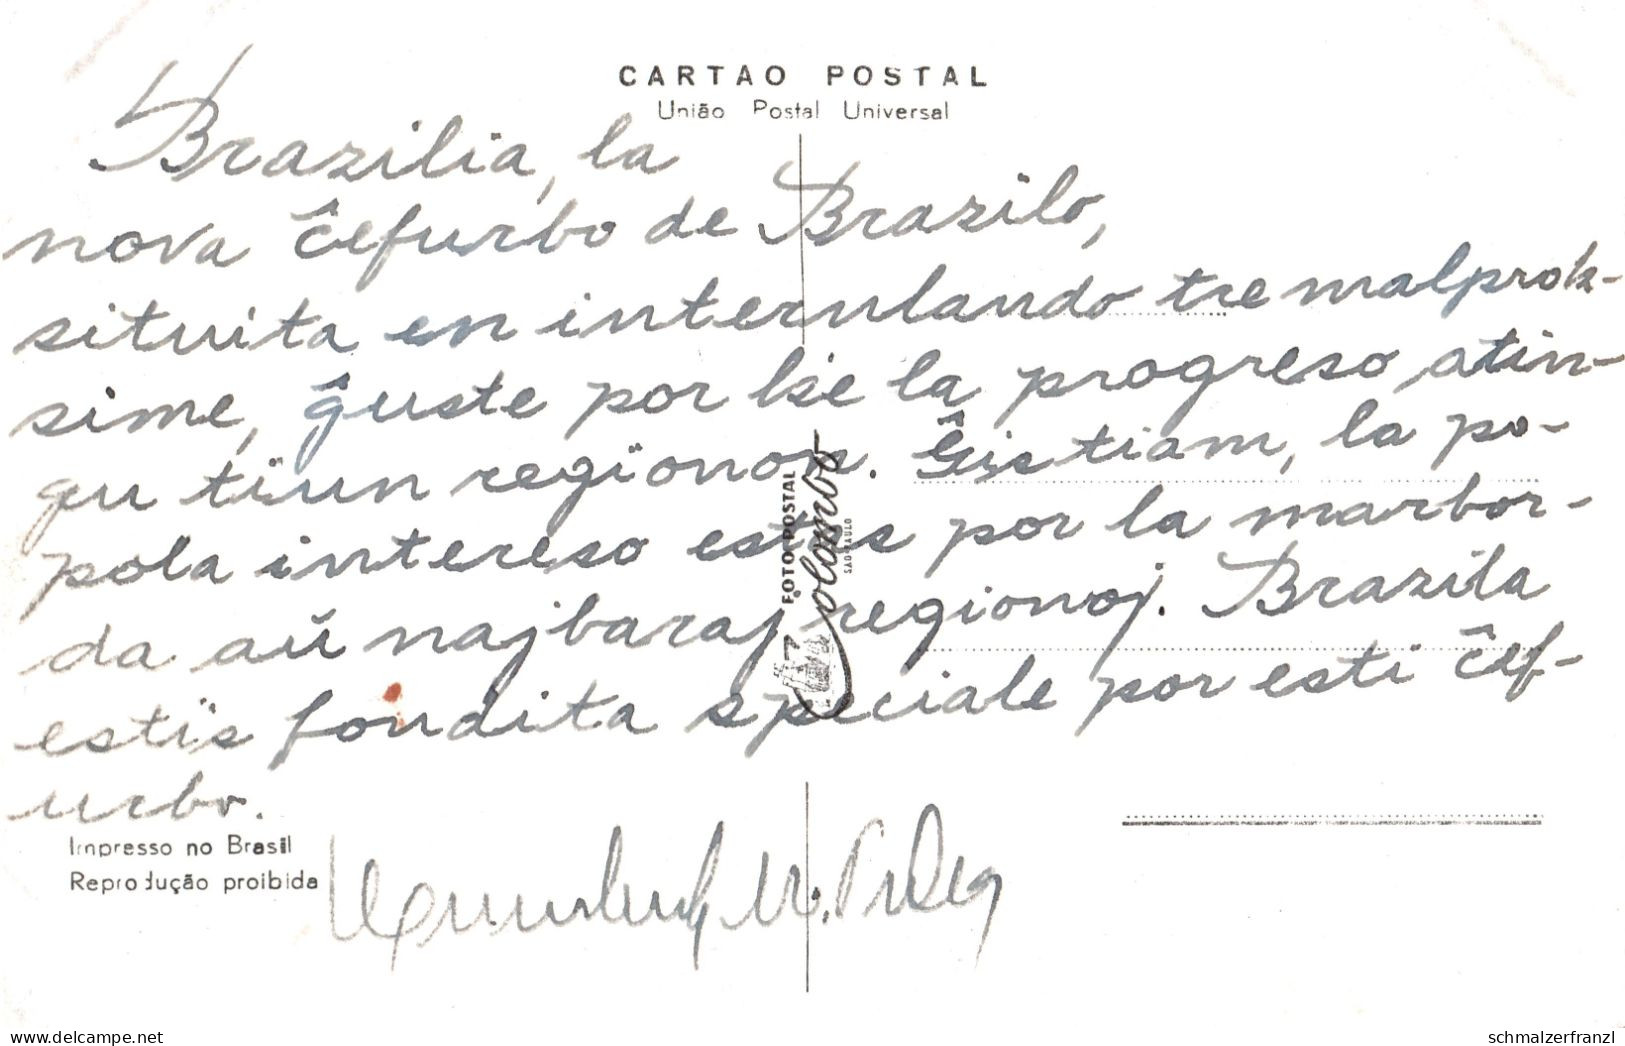 CARTAO POSTAL
União Postal Universal
Brazilia, la
nova ĉefurbo de Brazilo,
situita en internlando tre malprok-
sime, ĝuste por ke la progreso atin-
gu tiun regionon. Ĝistiam, la po-
pola intereso estis por la marbor-
da aŭ najbaraj regionoj. Brazila
estis fondita speciale por esti ĉef-
urbo.
FOTO POSTAL
Colombo
SAO PAULO
Impresso no Brasil
Reprodução proibida
schmalzerfranzl
www.delcampe.net